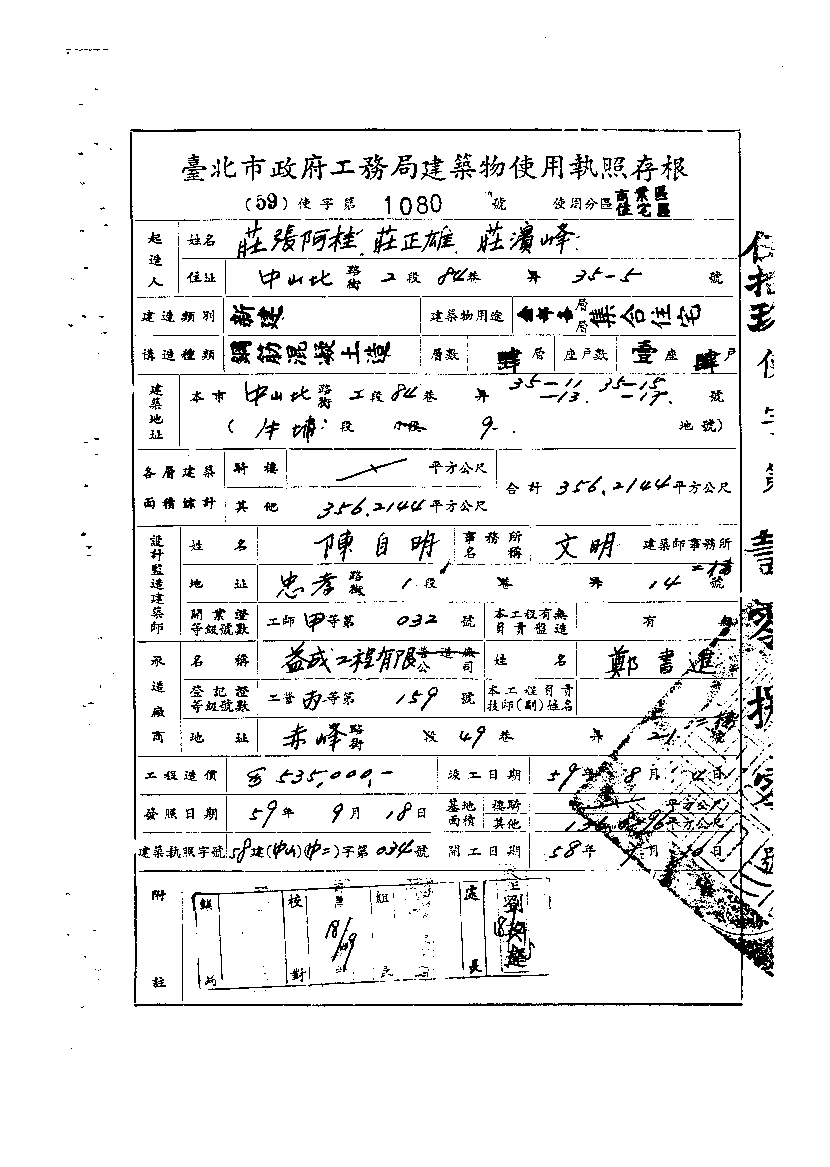 臺北市政府工務局建築物使用執照存根
(59) 使字第 1080 號 使用分區 商業區 住宅區
起造人 姓名 莊張阿桂 莊正雄 莊濱峰
住址 中山北 路街 2 段 84 巷 弄 35-5 號
建造類別 新建 建築物用途 層 層 集合住宅
構造種類 鋼筋混凝土造 層數 肆層 座戶數 壹座 肆戶
建築地址 本市 中山北 路街 2段 84 巷 弄 35-11 -13 35-15 -17 號
(牛埔 段 小段 9 地號)
各層建築面積總計 騎樓 平方公尺 合計 356.2144 平方公尺
其他 356.2144 平方公尺
設計監造建築師 姓名 陳自明 事務所名稱 文明 建築師事務所
地址 忠孝 路街 1 段 巷 弄 14 號
開業證等級號數 工師 甲等第 032 號 本工程有無負責監造 有
承造廠商 名稱 益成工程有限公司 姓名 鄭書進
登記證等級號數 工營 丙等第 159 號 本工程負責技師(副)姓名
地址 赤峰 路街 段 49 巷 弄 21 號
工程造價 535,000,- 竣工日期 59 年 8 月 日
發照日期 59 年 9 月 18 日 基地面積 樓騎 平方公尺
其他 平方公尺
建築執照字號 58建(中山)(中二)字第 034 號 開工日期 58 年 月 日
附註 校對 18/9 組長 處長 18/9
使字第 壹零捌零 號